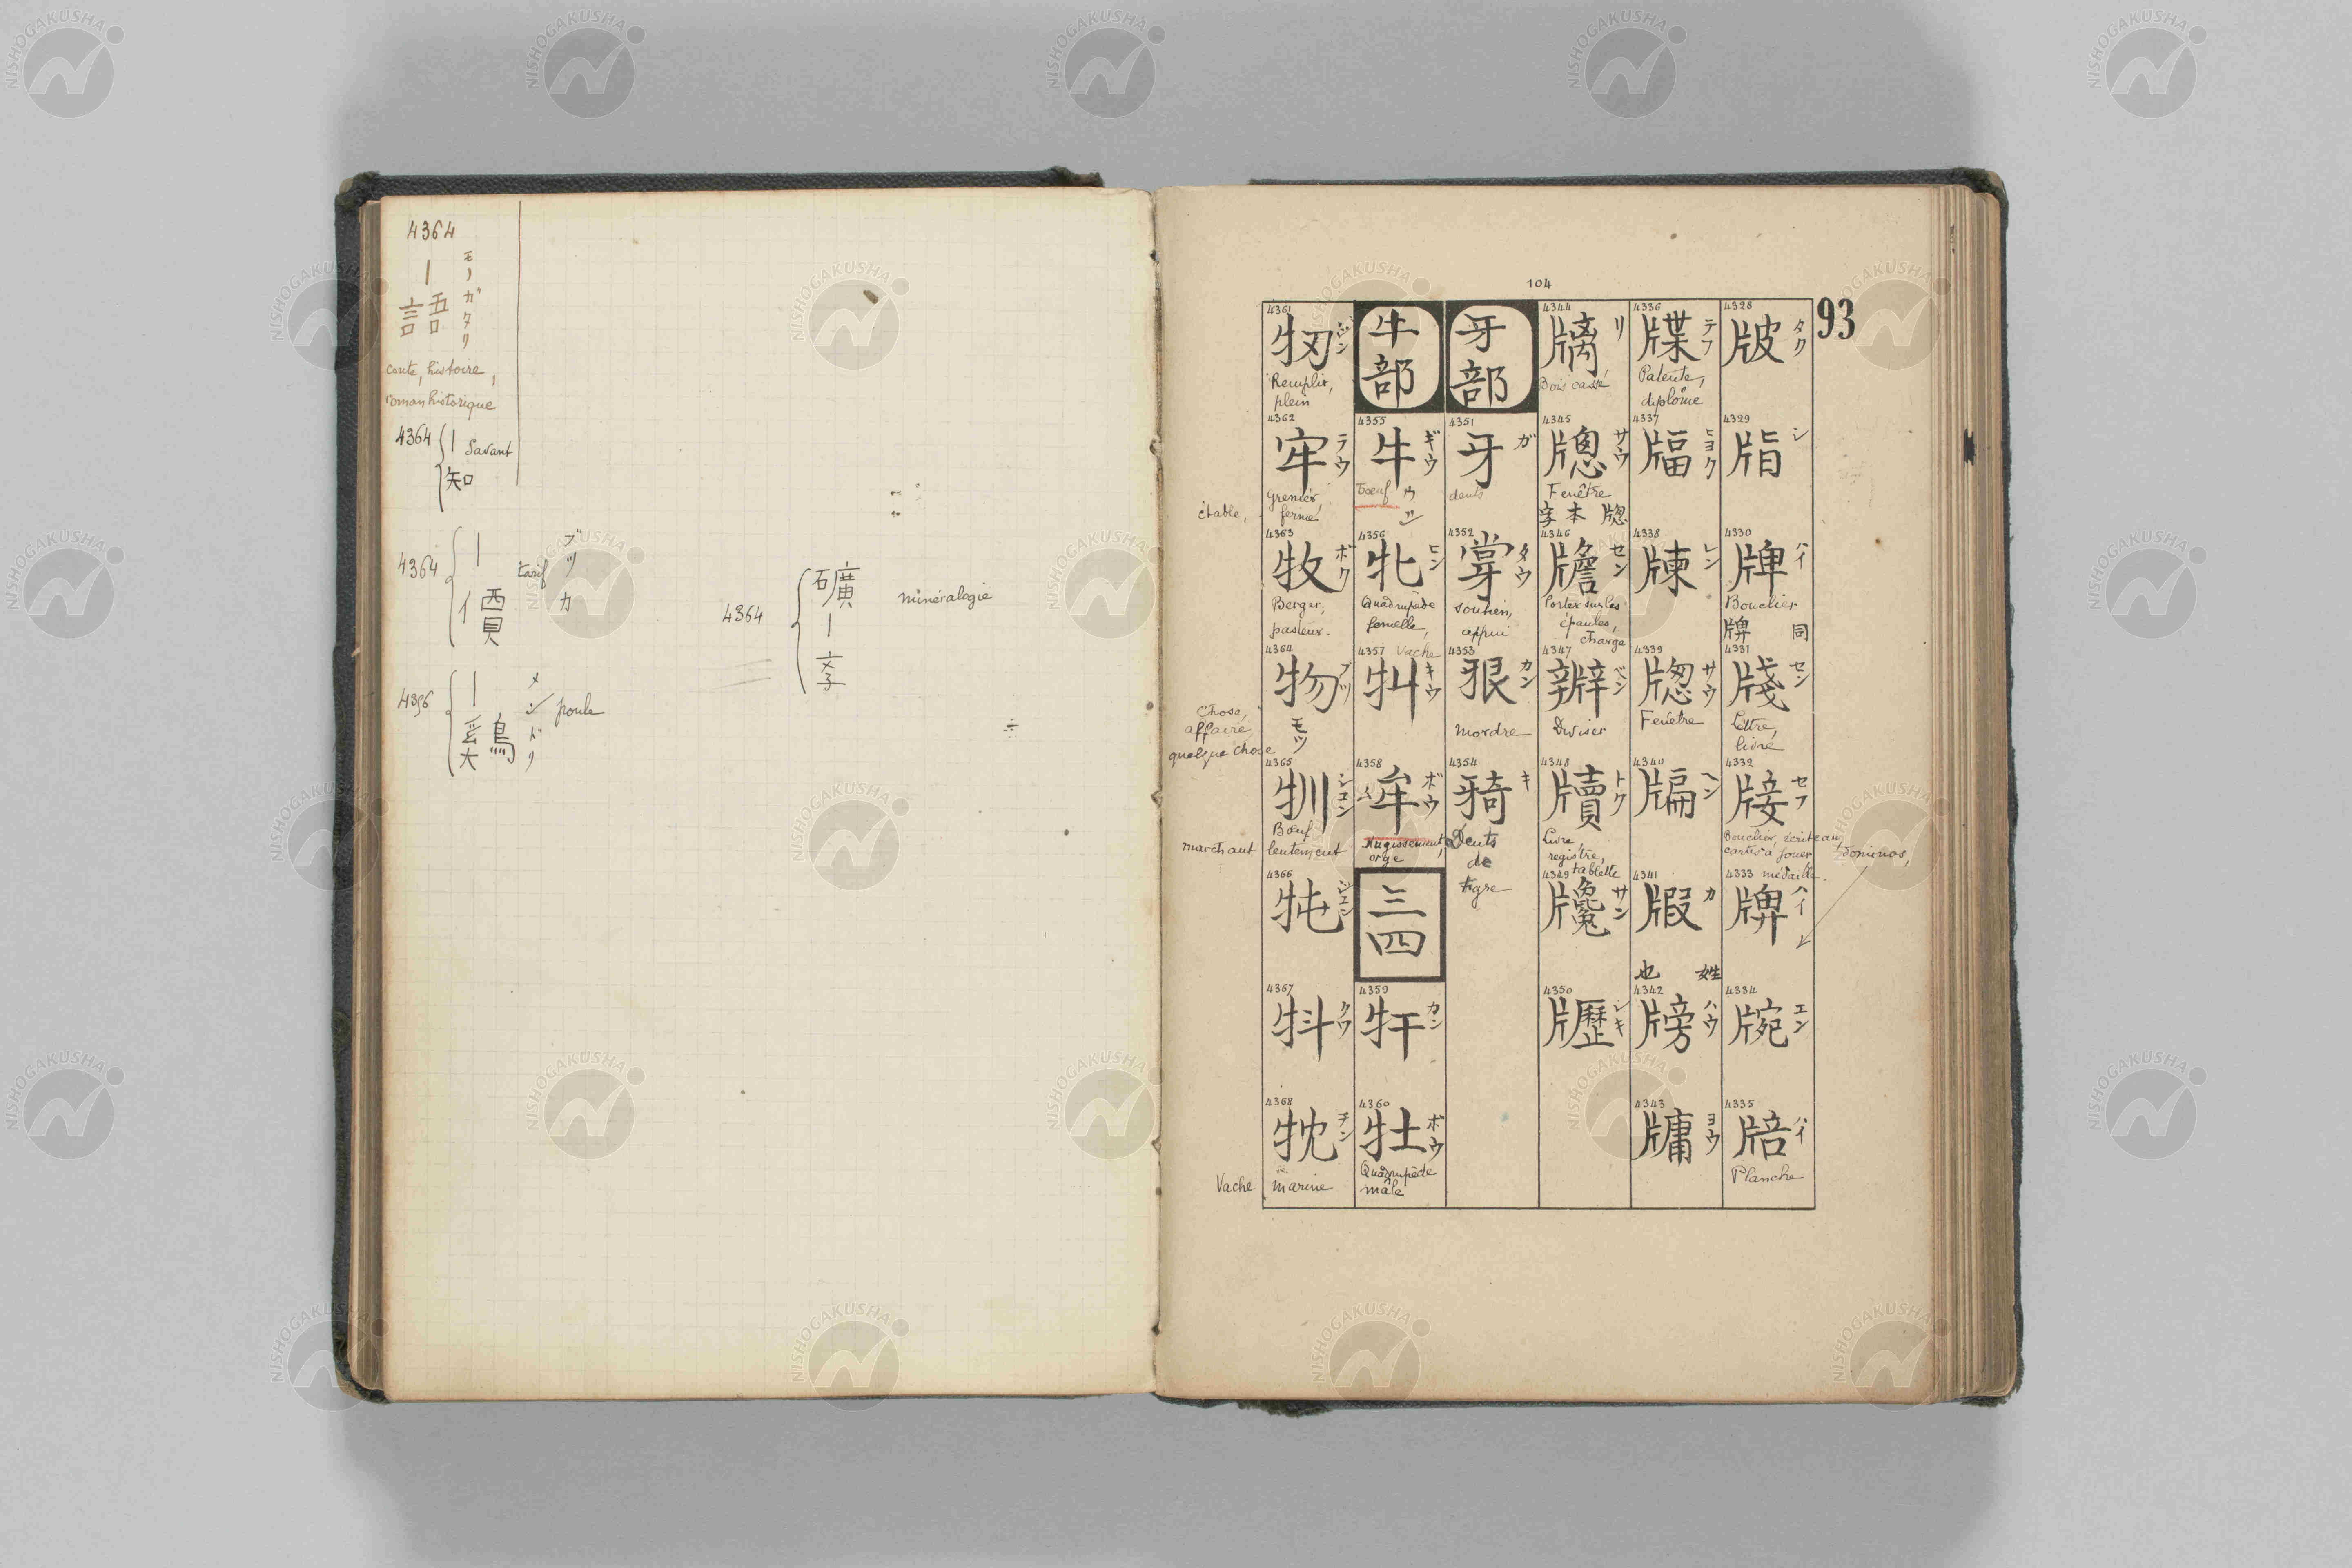 4364
｜
語
モノガタリ
conte, histoire,
roman historique
4364 ｜ Savant
知
4364 ｜
價
tarif
ブツカ
4356 ｜
鷄
メンドリ
poule
4364 礦
｜
学
minéralogie
104
93
4328 タク
4329 シ
4330 牌 ハイ
Bouclier
同 牌
4331 牋 セン
Lettre,
livre
4332 セフ
Bouclier, écriteau,
cartes à jouer, dominos,
médaille.
4333 ハイ
4334 エン
4335 牓 ハイ
Planche
4336 牒 テフ
Patente,
diplôme
4337 ヒヨク
4338 レン
4339 牎 サウ
Fenêtre
4340 ヘン
4341 カ
姓也
4342 牓 ハウ
4343 牗 ヨウ
4344 リ
Bois cassé
4345 サウ
Fenêtre
牎本字
4346 セン
Porter sur les
épaules,
charge
4347 ベン
Diviser
4348 牘 トク
Livre,
registre,
tablette
4349 サン
4350 レキ
牙部
4351 牙 ガ
dents
4352 タウ
soutien,
appui
4353 カン
mordre
4354 キ
Dents
de
tigre
牛部
4355 牛 ギウ
Bœuf ウシ
4356 牝 ヒン
Quadrupède
femelle,
Vache
4357 キウ
4358 牟 ボウ
Mugissement,
orge
三四
4359 カン
4360 牡 ボウ
Quadrupède
mâle
4361 牣 ジン
Remplir,
plein
4362 牢 ラウ
Grenier,
fermé
étable,
4363 牧 ボク
Berger,
pasteur.
4364 物 ブツ
モツ
Chose,
affaire,
quelque chose
4365 シユン
Bœuf
marchant lentement
4366 ジユン
4367 クワ
4368 チン
Vache marine